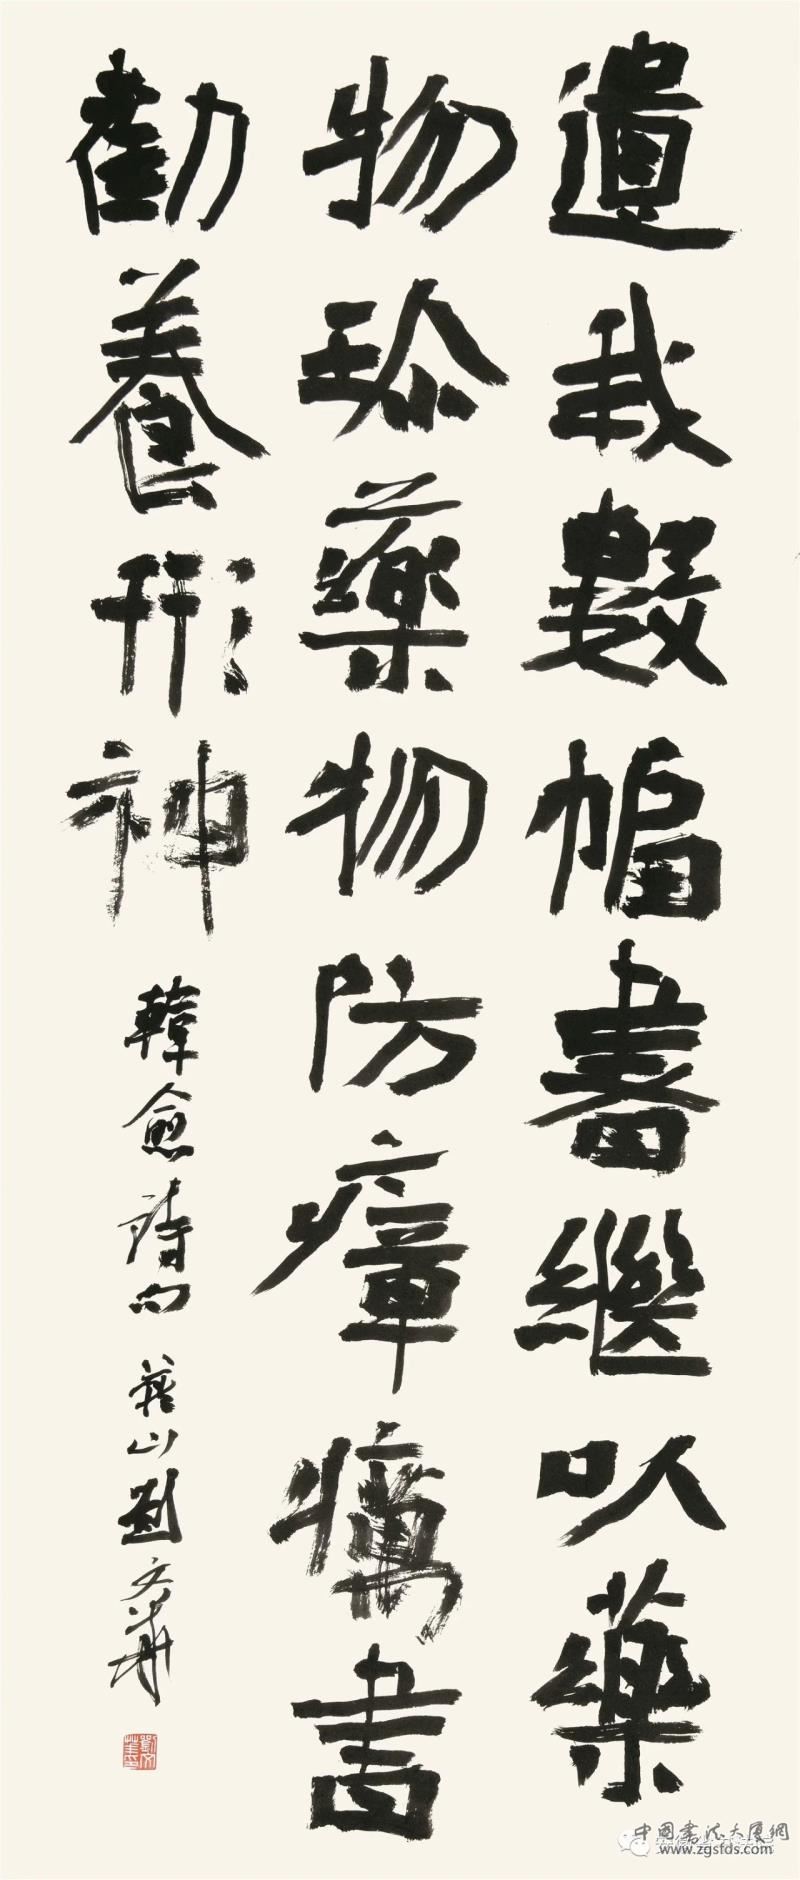 遺我數幅書繼以藥
物珍藥物防瘴癘書
勸養形神
韓愈詩句 蘇山劉文華
中國書法大厦網
www.zgsfds.com